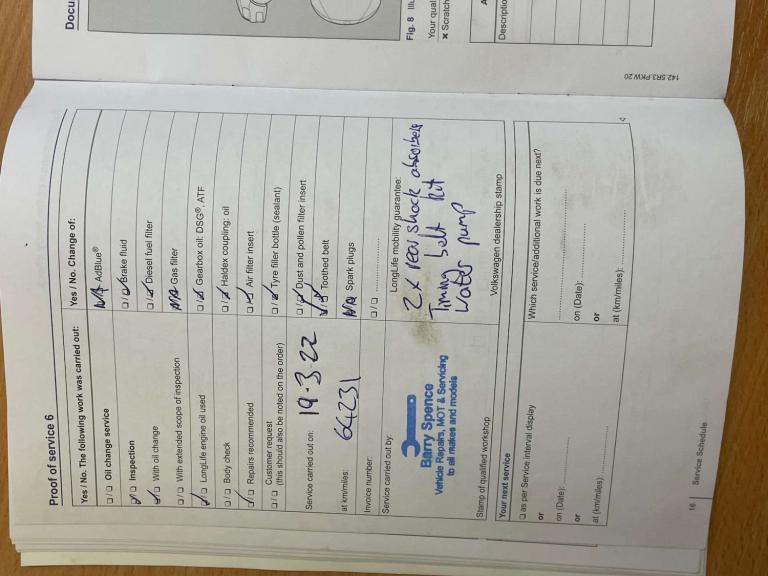 Proof of service 6
Yes / No. The following work was carried out:
☐/☐ Oil change service
☑/☐ Inspection
☑/☐ With oil change
N/A With extended scope of inspection
☑/☐ LongLife engine oil used
☐/☐ Body check
☑/☐ Repairs recommended
☐/☐ Customer request
(this should also be noted on the order)
Service carried out on: 19-3-22
at km/miles: 64231
Invoice number:
Service carried out by:
Barry Spence
Vehicle Repairs, MOT & Servicing
to all makes and models
Stamp of qualified workshop
Yes / No. Change of:
N/A AdBlue®
☐/☑ Brake fluid
☐/☑ Diesel fuel filter
N/A Gas filter
☐/☑ Gearbox oil: DSG®, ATF
☐/☑ Haldex coupling: oil
☐/☑ Air filter insert
☐/☑ Tyre filler bottle (sealant)
☐/☑ Dust and pollen filter insert
Toothed belt
N/A Spark plugs
☐/☐ ..............
LongLife mobility guarantee:
2x rear shock absorbers
Timing belt kit
water pump
Volkswagen dealership stamp
Your next service
☐ as per Service interval display
or
on (Date):
or
at (km/miles):
Which service/additional work is due next?
on (Date):
or
at (km/miles):
16 | Service Schedule
Docu
Fig. 8
Your qual
× Scratch
Descriptio
142.5R3.PKW.20